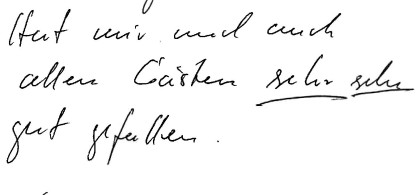 Hat mir und auch
allen Gästen sehr sehr
gut gefallen.